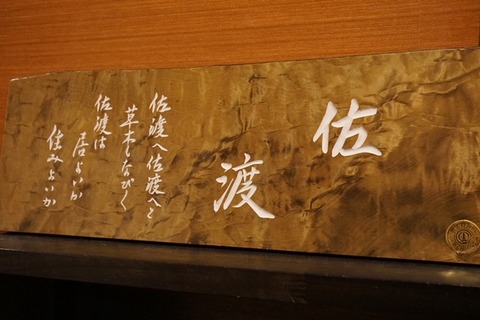 佐渡
佐渡へ佐渡へと
草木もなびく
佐渡は
居よいか
住みよいか